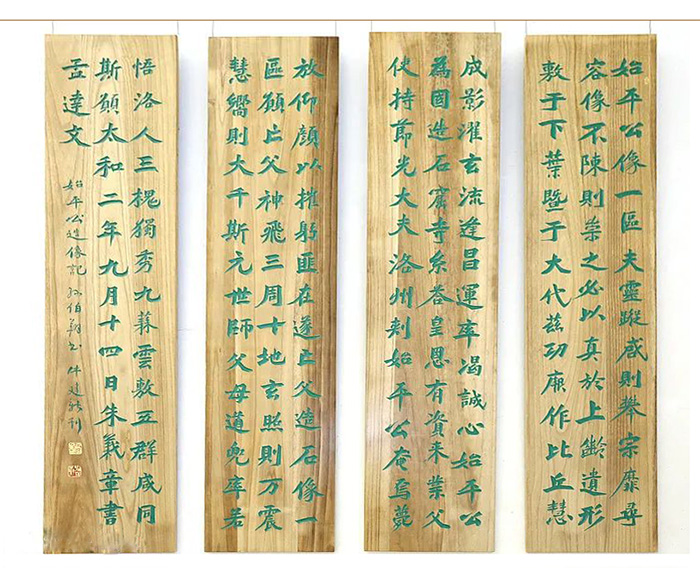 始平公像一區夫靈蹤咸則攀宗靡尋
容像不陳則崇之必以真於上齡遺形
敷于下葉暨于大代茲功厥作比丘慧
成影濯玄流逢昌運率竭誠心始平公
為國造石窟寺系荅皇恩有資来業父
使持節光大夫洛州刾始平公奄焉薨
放仰顔以摧躬匪在遂亡父造石像一
區願亡父神飛三周十地玄照則万震
慧嚮則大千斯元世師父母道兜率若
悟洛人三槐獨秀九蕀雲敷五群咸同
斯願太和二年九月十四日朱義章書
孟達文
始平公造像記 孙伯翔书